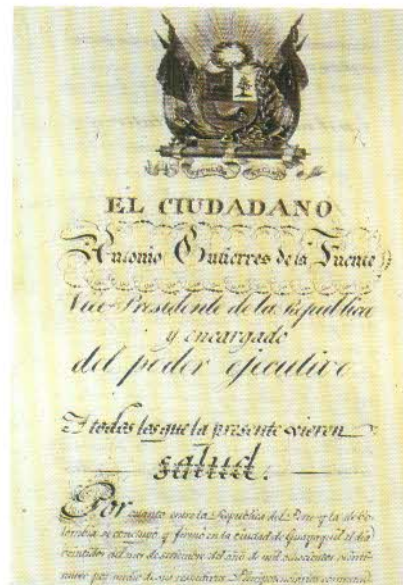 EL CIUDADANO
Antonio Gutierres de la Fuente
Vice-Presidente de la Republica
y encargado
del poder ejecutivo
A todos los que la presente vieren
salud.
Por cuanto entre la Republica del Peru y la de Co-
lombia se concluyó y firmó en la ciudad de Guayaquil el dia
veintidos del mes de setiembre del año de mil ochocientos veinti-
nueve por medio de sus respectivos Plenipotenciarios